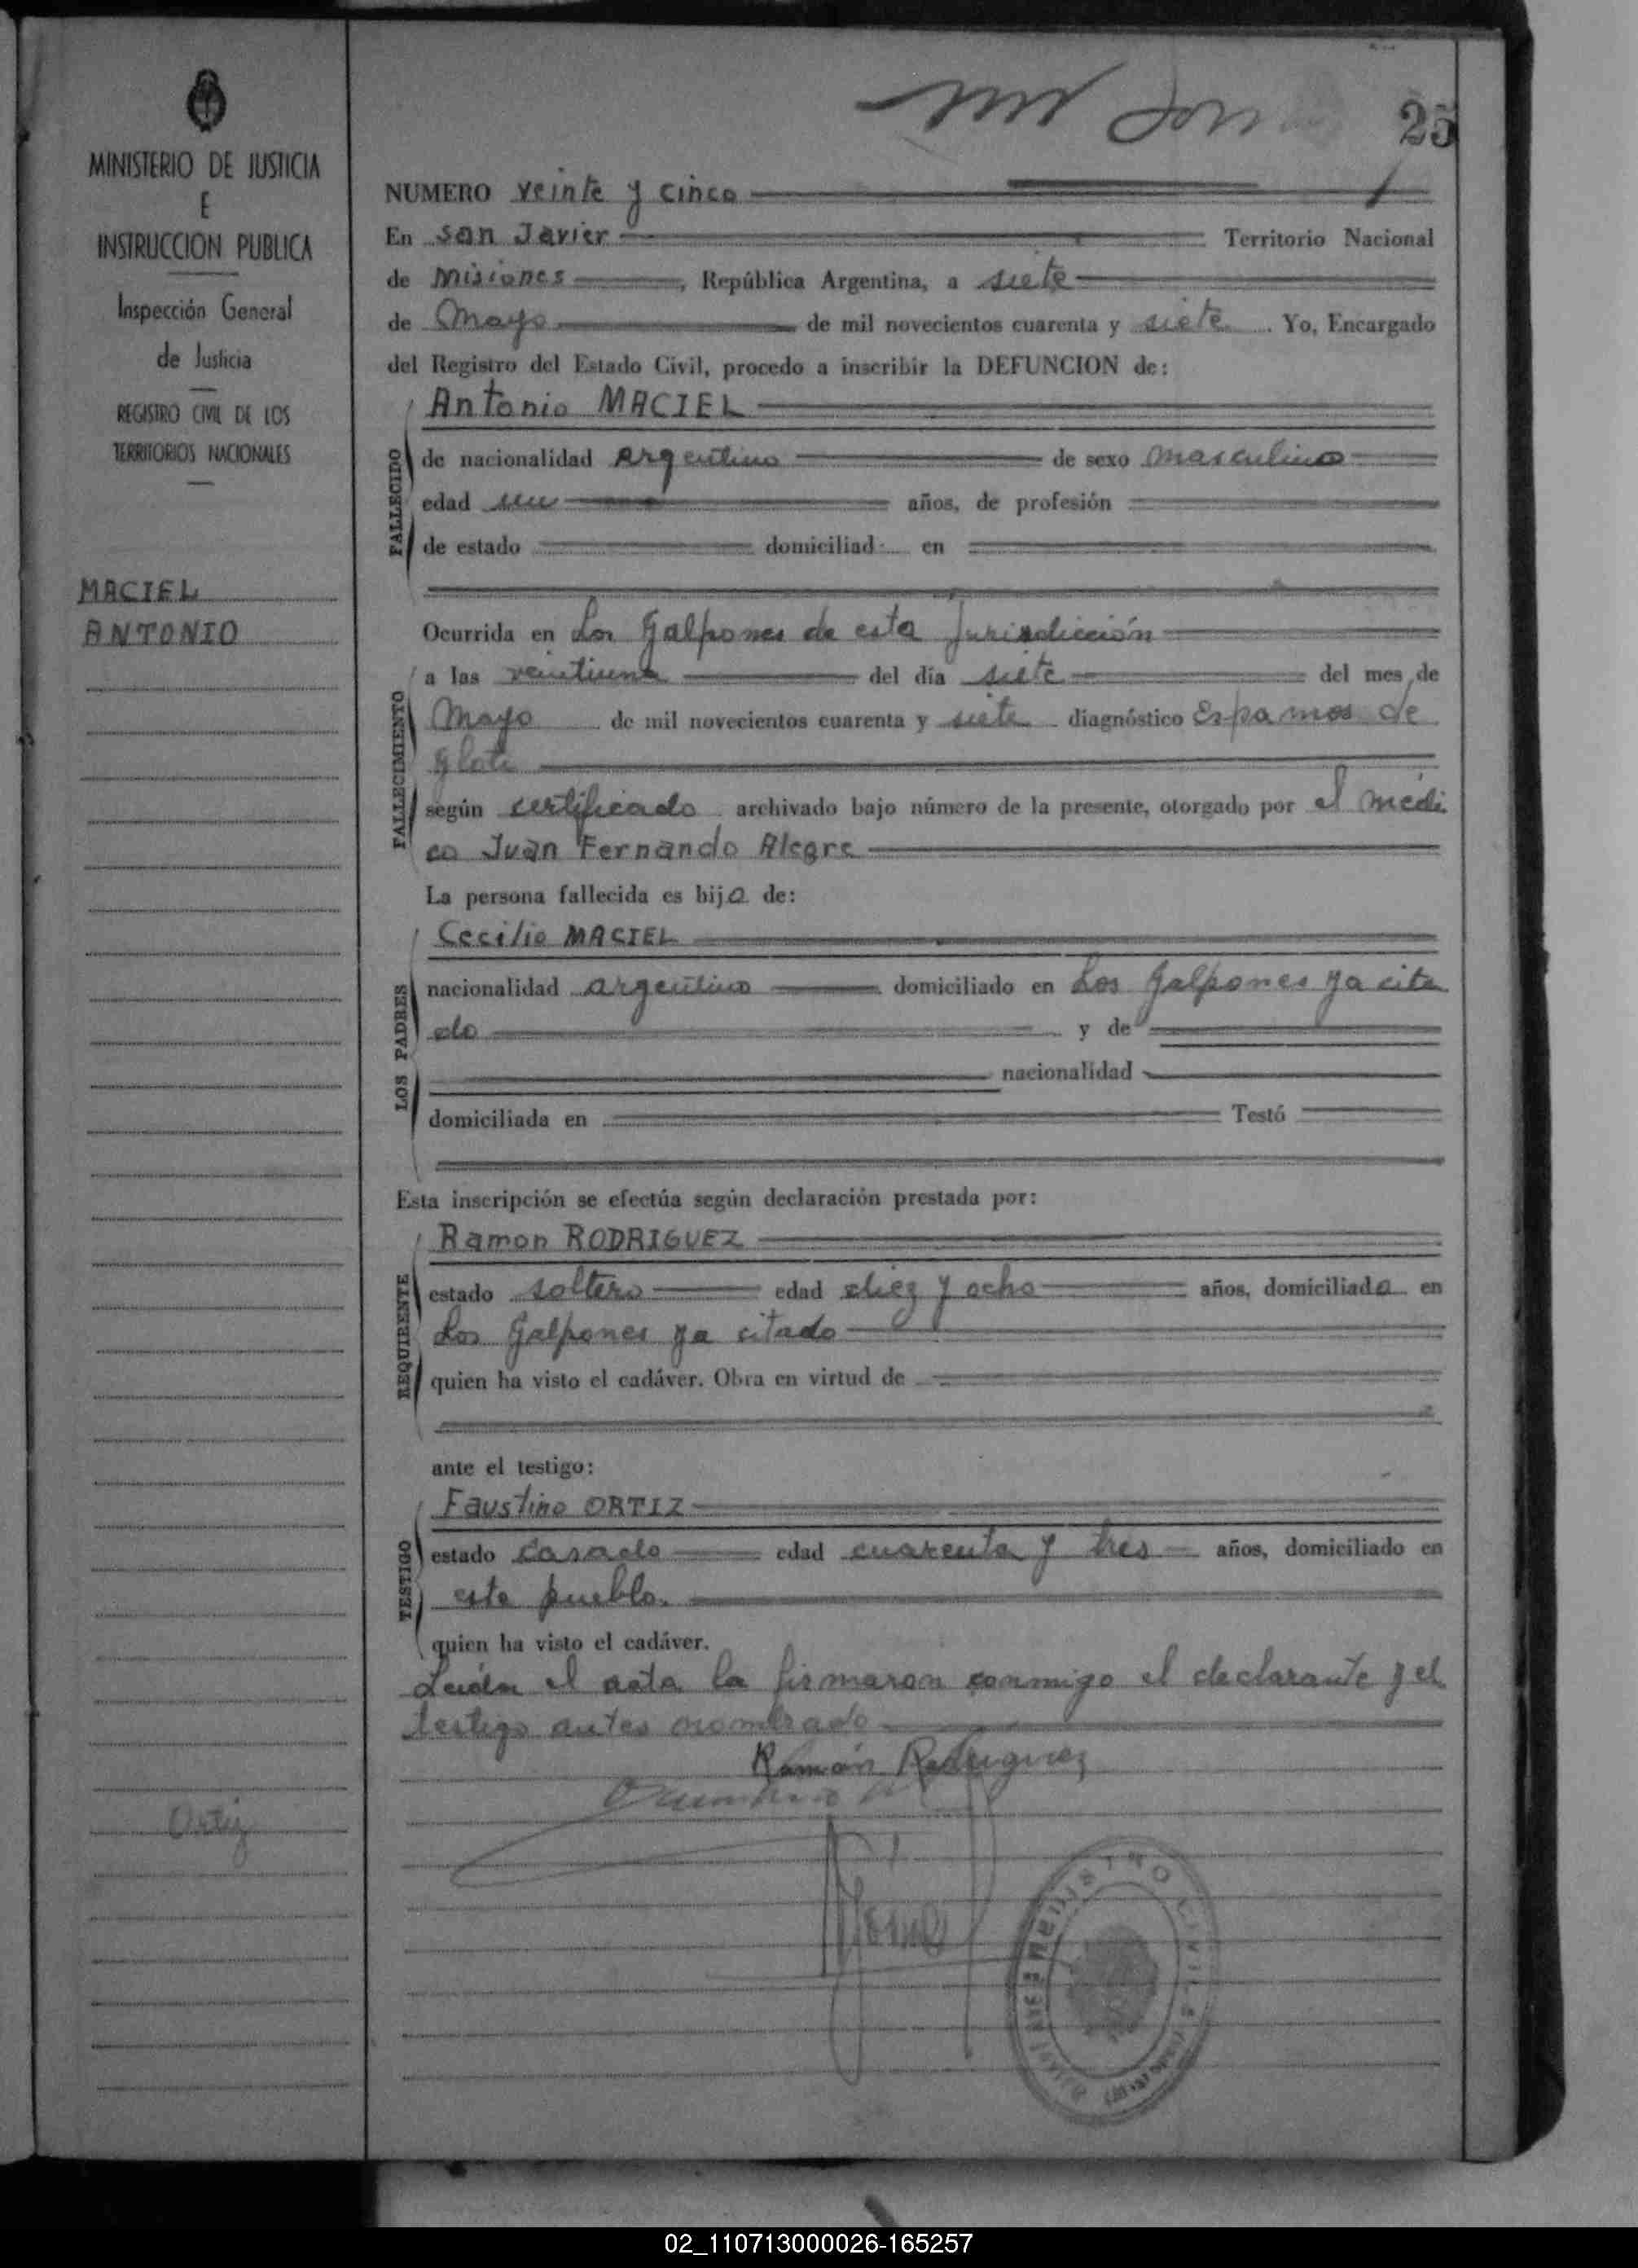 25
MINISTERIO DE JUSTICIA
E
INSTRUCCION PUBLICA
Inspección General
de Justicia
REGISTRO CIVIL DE LOS
TERRITORIOS NACIONALES
MACIEL
ANTONIO
Ortiz
NUMERO veinte y cinco
En san Javier Territorio Nacional
de Misiones, República Argentina, a siete
de Mayo de mil novecientos cuarenta y siete. Yo, Encargado
del Registro del Estado Civil, procedo a inscribir la DEFUNCION de:
Antonio MACIEL
FALLECIDO
de nacionalidad argentino de sexo masculino
edad un años, de profesión
de estado domiciliad en
Ocurrida en Los Galpones de esta Jurisdicción
FALLECIMIENTO
a las veintiuna del día siete del mes de
Mayo de mil novecientos cuarenta y siete diagnóstico Espamos de
glotis
según certificado archivado bajo número de la presente, otorgado por el médi
co Juan Fernando Alegre
La persona fallecida es hijo de:
LOS PADRES
Cecilio MACIEL
nacionalidad argentino domiciliado en Los Galpones ya cita
do y de
nacionalidad
domiciliada en Testó
Esta inscripción se efectúa según declaración prestada por:
REQUIRENTE
Ramon RODRIGUEZ
estado soltero edad diez y ocho años, domiciliado en
Los Galpones ya citado
quien ha visto el cadáver. Obra en virtud de
ante el testigo:
TESTIGO
Faustino ORTIZ
estado casado edad cuarenta y tres años, domiciliado en
este pueblo.
quien ha visto el cadáver.
Leída el acta la firmaron conmigo el declarante y el
testigo antes nombrado
Ramón Rodriguez
02_110713000026-165257